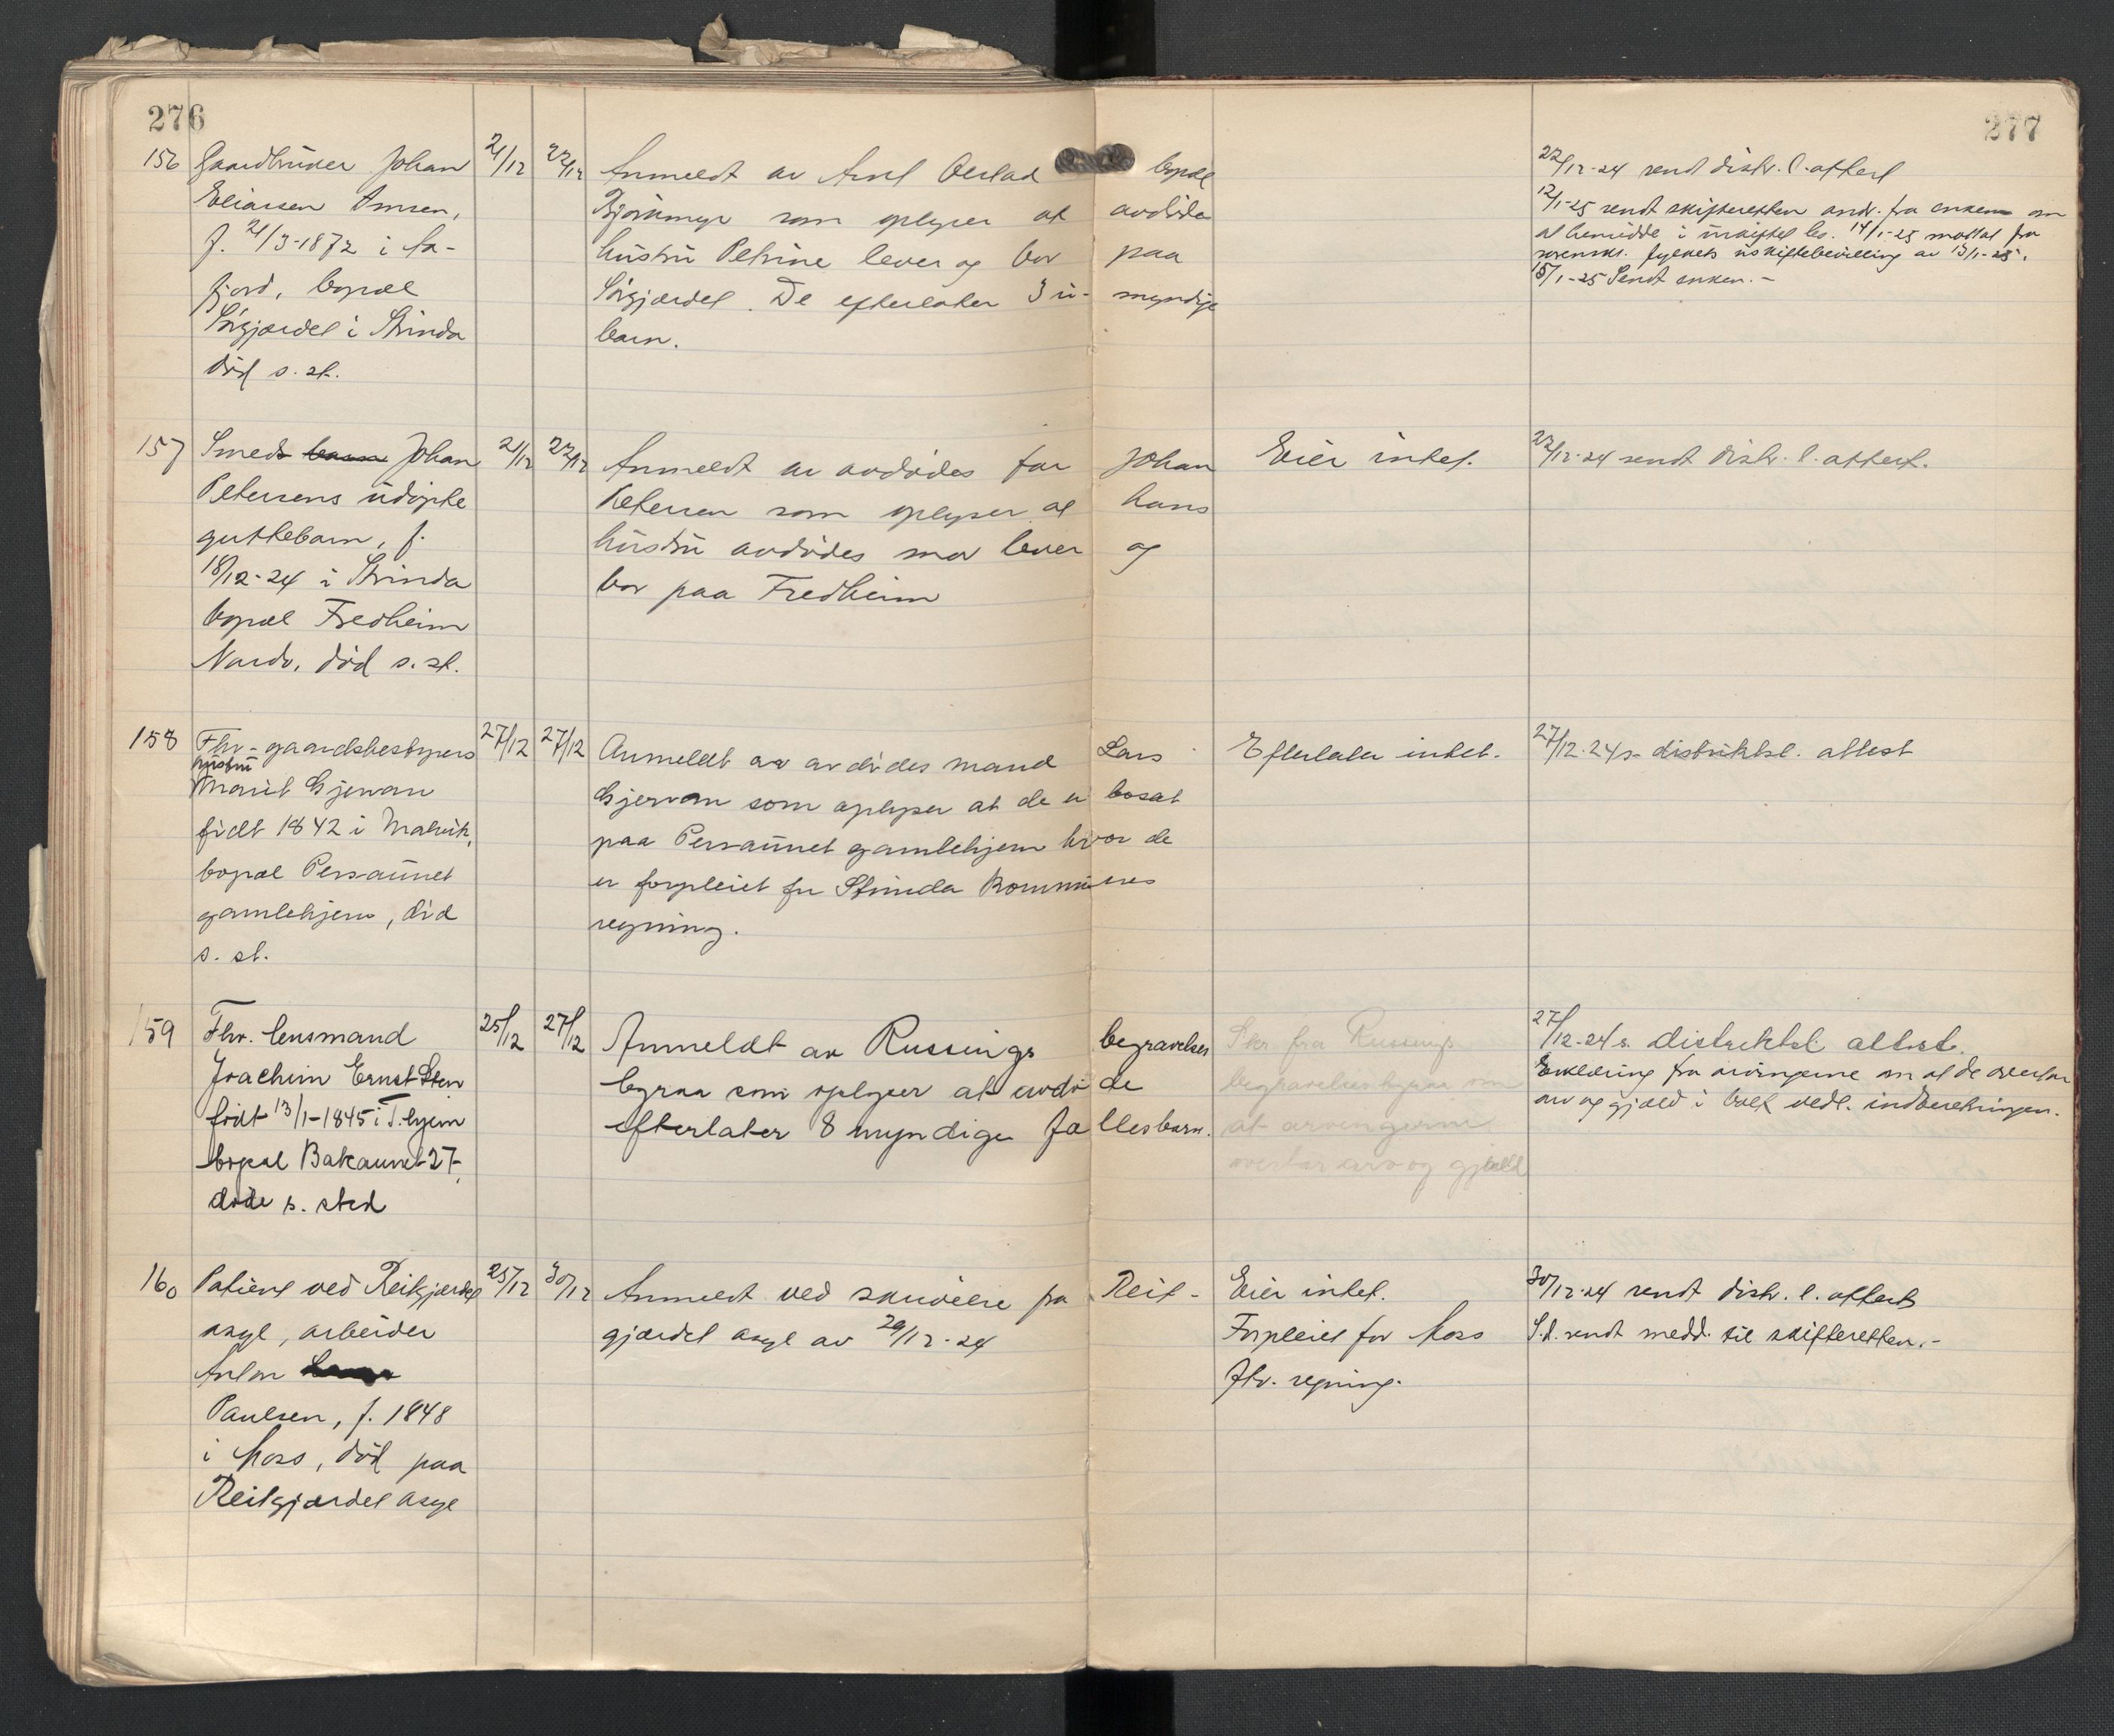 276
277
156 Gaardbruker Johan
Eliassen Amsen,
f. 21/3-1872 i Aa-
fjord, bopæl
Sørgjærdet i Strinda
død s. st.
21/12 22/12
Anmeldt av Axel bopæl
Bjørkmyr som oplyser at avdøde
hustru Petrine lever og bor paa
Sørgjærdet. De efterlater 3 u- myndige
barn.
22/12-24 sendt distr. l. attest
12/1-25 sendt skifteretten andr. fra enken om
at hensidde i uskiftet bo. 14/1-25 mottat fra
sorenskr. fylkets uskiftebevilling av 13/1-25.
15/1-25 Sendt enken. -
157 Smed Johan
Petersens udøpte
guttebarn, f.
18/12-24 i Strinda
bopæl Fredheim
Nardo, død s. st.
21/12 22/12
Anmeldt av avdødes far Johan
Petersen som oplyser at hans
hustru avdødes mor lever og
bor paa Fredheim
Eier intet.
22/12-24 sendt distr. l. attest.
158 Fhv. gaardsbestyrers
hustru
Marit Gjervan
født 1842 i Malvik,
bopæl Persaunet
gamlehjem, død
s. st.
27/12 27/12
Anmeldt av avdødes mand Lars
Gjervan som oplyser at de er bosat
paa Persaunet gamlehjem hvor de
er forpleiet for Strinda kommunes
regning.
Efterlater intet.
27/12-24 s. distriktsl. attest
159 Fhv. lensmand
Joachim Ernst Sten
født 13/1-1845 i T.hjem
bopæl Bakaunet 27,
døde s. sted
25/12 27/12
Anmeldt av Russings begravelses
byraa som oplyser at avdøde
efterlater 8 myndige fællesbarn.
Skr. fra Russings
begravelsesbyraa om
at arvingerne
overtar arv og gjæld
27/12-24 s. distriktsl. attest.
Erklæring fra arvingerne om at de overtar
arv og gjæld i boet vedl. indberetningen.
160 Patient ved Reitgjærdet
asyl, arbeider
Anton
Paulsen, f. 1848
i Moss, død paa
Reitgjærdet asyl
25/12 30/12
Anmeldt ved skrivelse fra Reit-
gjærdet asyl av 29/12-24
Eier intet.
Forpleiet for Moss
fhv. regning.
30/12-24 sendt distr. l. attest
S.d. sendt medd. til skifteretten. -